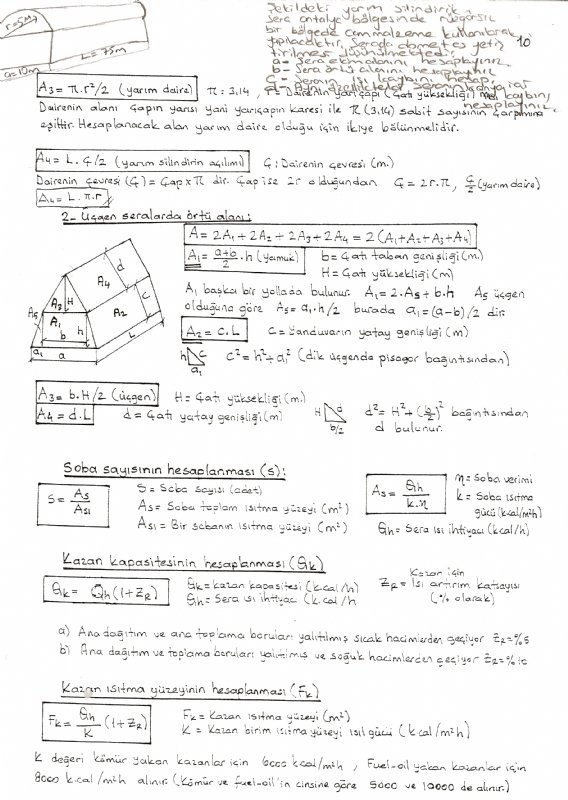 Şekildeki yarım silindirik
sera antalya bölgesinde rüzgarsız
bir bölgede cam malzeme kullanılarak
yapılacaktır. Serada domates yetiş
tirilmesi düşünülmektedir.
10
a- Sera alanını hesaplayınız.
b- Sera örtü alanını hesaplayınız
C- Seranın ısı kaybını hesap.
r=5m
L=75m
a=10m
A3 = π.r²/2 (yarım daire) π: 3,14 , r = Dairenin yarıçapı (Çatı yüksekliği) m
hesaplayınız.
Dairenin alanı çapın yarısı yani yarıçapın karesi ile π (3,14) sabit sayısının çarpımına
eşittir. Hesaplanacak alan yarım daire olduğu için ikiye bölünmelidir.
A4 = L.Ç/2 (yarım silindirin açılımı) Ç: Dairenin çevresi (m.)
Dairenin çevresi (Ç) = Çap x π dir. Çap ise 2r olduğundan Ç = 2r.π, Ç/2 (yarım daire)
A4 = L.π.r
2- Üçgen seralarda örtü alanı:
A = 2A1 + 2A2 + 2A3 + 2A4 = 2(A1+A2+A3+A4)
A1 = a+b/2 .h (yamuk) b = Çatı taban genişliği (m)
H = Çatı yüksekliği (m)
A1 başka bir yollada bulunur. A1 = 2.A5 + b.h A5 üçgen
olduğuna göre A5 = a1.h/2 burada a1 = (a-b)/2 dir.
A2 = c.L C = Yanduvarın yatay genişliği (m)
h c a1 c² = h² + a1² (dik üçgende pisagor bağıntısından)
A4 d A3 H A5 A1 A2 c b h a1 a L
A3 = b.H/2 (üçgen) H = Çatı yüksekliği (m.)
A4 = d.L d = Çatı yatay genişliği (m) H d b/2 d² = H² + (b/2)² bağıntısından
d bulunur.
Soba sayısının hesaplanması (s):
S = As/As1 S = Soba sayısı (adet)
As = Soba toplam ısıtma yüzeyi (m²)
As1 = Bir sobanın ısıtma yüzeyi (m²)
As = Qh/k.η η = Soba verimi
k = Soba ısıtma
gücü (kcal/m²h)
Qh = Sera ısı ihtiyacı (kcal/h)
Kazan kapasitesinin hesaplanması (Qk)
Qk = Qh (1+ZR) Qk = kazan kapasitesi (k.cal/h)
Qh = Sera ısı ihtiyac (k.cal/h
Kazan için
ZR = Isı artırım katsayısı
(% olarak)
a) Ana dağıtım ve ana toplama boruları yalıtılmış sıcak hacimlerden geçiyor ZR = %5
b) Ana dağıtım ve toplama boruları yalıtımış ve soğuk hacimlerden geçiyor ZR = %10
Kazan ısıtma yüzeyinin hesaplanması (Fk)
Fk = Qh/K (1+ZR) Fk = Kazan ısıtma yüzeyi (m²)
K = Kazan birim ısıtma yüzeyi ısıl gücü (k.cal/m²h)
K değeri kömür yakan kazanlar için 6000 kcal/m²h , Fuel-oil yakan kazanlar için
8000 k.cal/m²h alınır. (Kömür ve fuel-oil'in cinsine göre 5000 ve 10000 de alınır.)